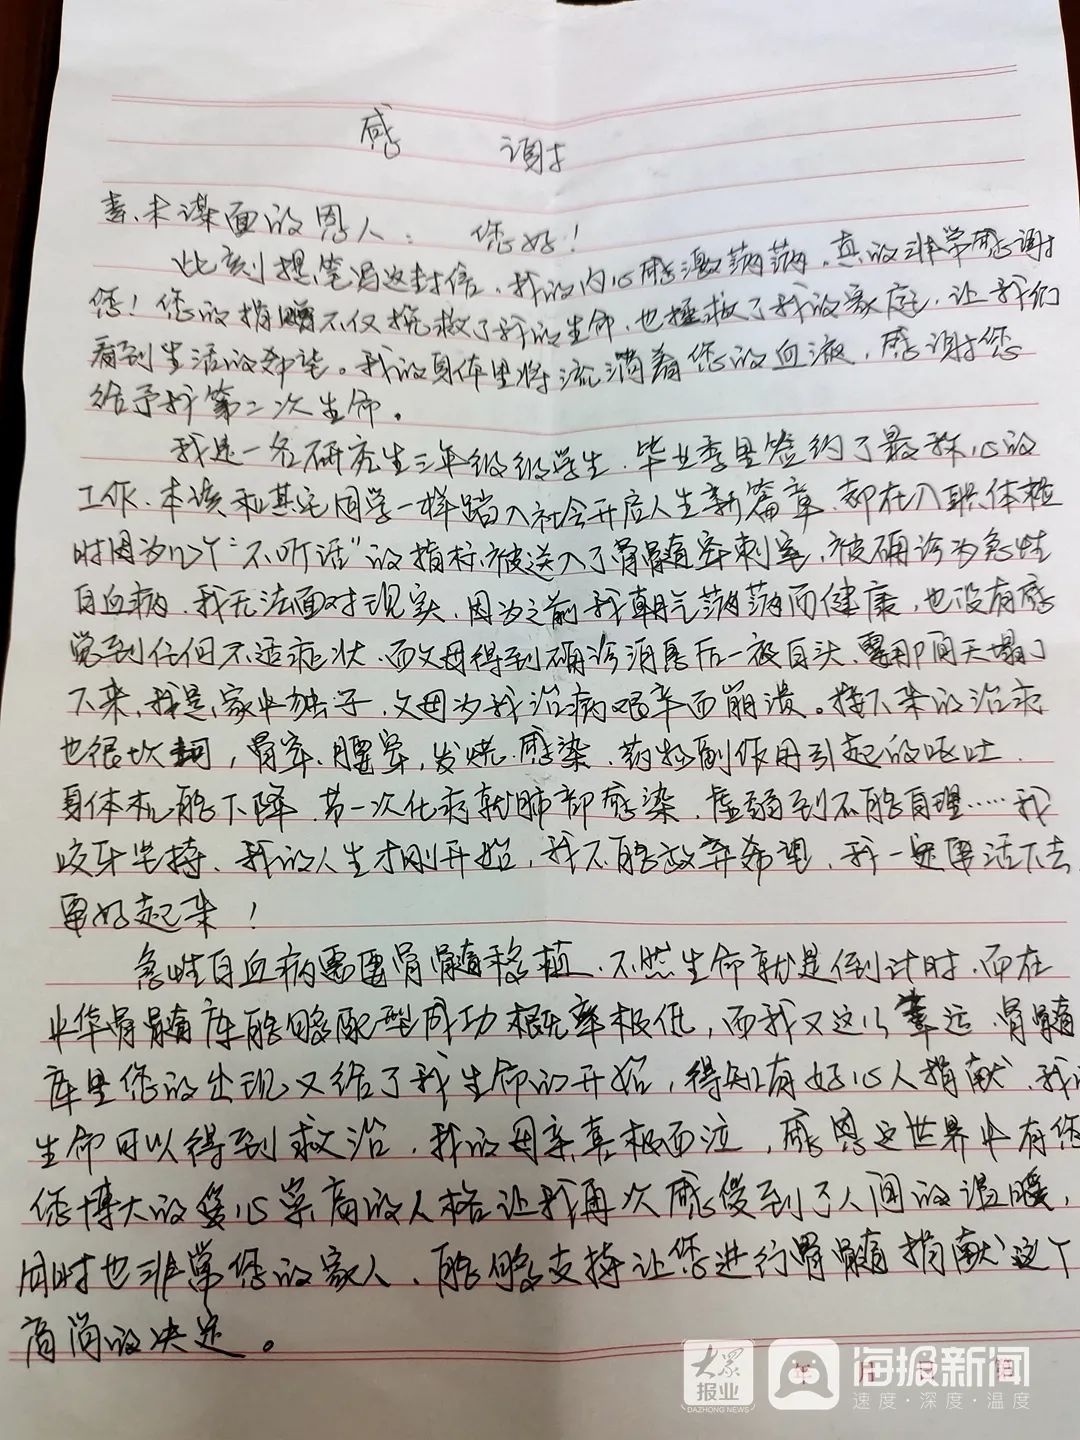 感 谢
素未谋面的恩人： 您好！
此刻提笔写这封信，我的内心感激满满，真的非常感谢
您！您的捐赠不仅挽救了我的生命，也拯救了我的家庭，让我们
看到生活的希望。我的身体里将流淌着您的血液，感谢您
给予我第二次生命。
我是一名研究生三年级级学生，毕业季里签约了最称心的
工作，本该和其它同学一样踏入社会开启人生新篇章，却在入职体检
时因为几个“不听话”的指标，被送入了骨髓穿刺室，被确诊为急性
白血病，我无法面对现实，因为之前我朝气满满而健康，也没有感
觉到任何不适症状，而父母得到确诊消息后一夜白头，霎那间天塌了
下来，我是家中独子，父母为我治病艰辛而崩溃。接下来的治疗
也很坎坷，骨穿、腰穿，发烧，感染，药物副作用引起的呕吐，
身体机能下降，第一次化疗就肺部感染，虚弱到不能自理……我
咬牙坚持，我的人生才刚开始，我不能放弃希望，我一定要活下去
要好起来！
急性白血病需要骨髓移植，不然生命就是倒计时，而在
中华骨髓库能够配型成功概率极低，而我又这么幸运，骨髓
库里您的出现又给了我生命的开始，得知有好心人捐献，我的
生命可以得到救治，我的母亲喜极而泣，感恩这世界中有您
您博大的爱心崇高的人格让我再次感受到了人间的温暖，
同时也非常您的家人，能够支持让您进行骨髓捐献这个
高尚的决定。
大众
报业
DAZHONG NEWS
海报新闻
速度·深度·温度